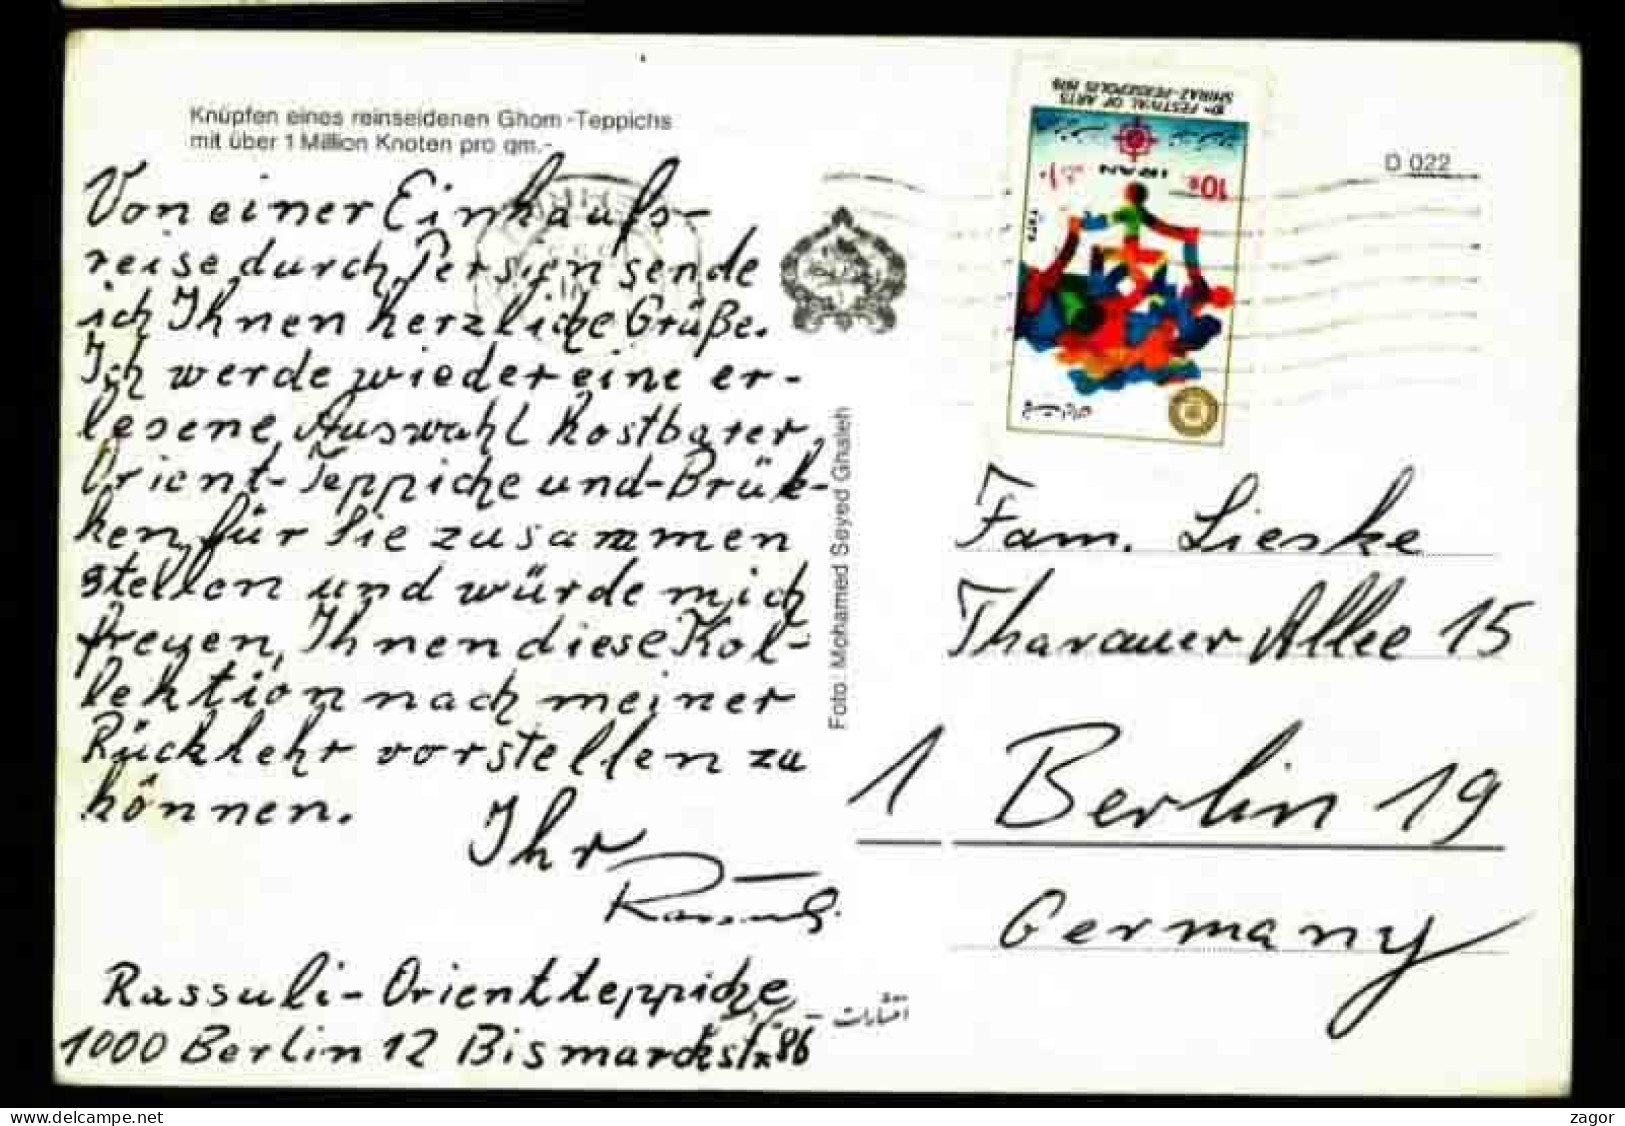 Knüpfen eines reinseidenen Ghom-Teppichs
mit über 1 Million Knoten pro qm.-
Von einer Einkaufs-
reise durch Persien sende
ich Ihnen herzliche Grüße.
Ich werde wieder eine er-
lesene Auswahl kostbarer
Orient-Teppiche und-Brük-
ken für Sie zusammen
stellen und würde mich
freuen, Ihnen diese Kol-
lektion nach meiner
Rückkehr vorstellen zu
können.
Ihr
Rassuli-Orientteppiche
1000 Berlin 12 Bismarckstr 86
Foto: Mohamed Seyed Ghaleh
انتشارات
10TH FESTIVAL OF ARTS
SHIRAZ-PERSEPOLIS 1976
IRAN
10R
D 022
Fam. Lieske
Tharauer Allee 15
1 Berlin 19
Germany
zagor